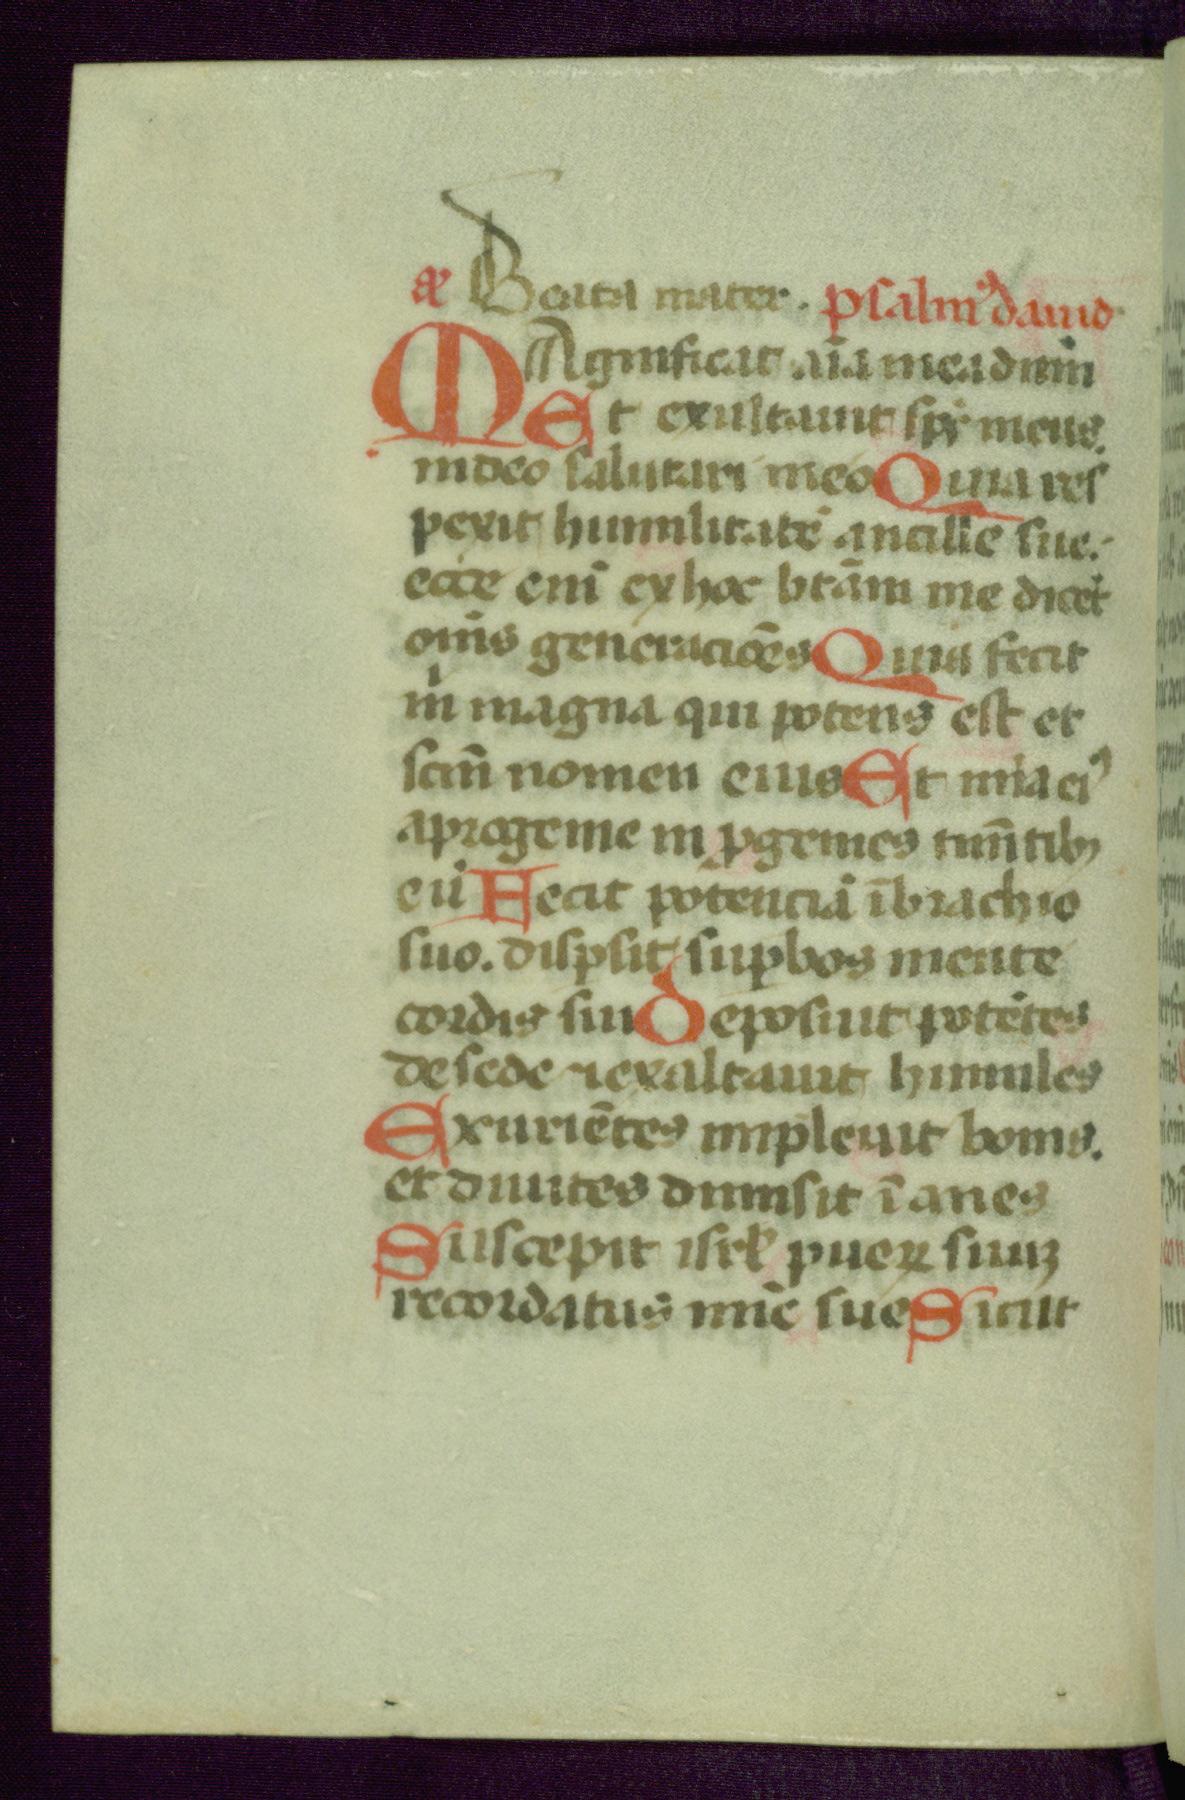 añ Beata mater. psalmꝰ dauid
MAgnificat aīa mea dnm̄
Et exultauit sp̄s meus.
in deo salutari meo Quia res
pexit humilitatē ancille sue.
ecce enī ex hoc btām me dicēt
om̄s generaciōes Quia fecit
m̄ magna qui potens est et
scm̄ nomen eius Et mīa eiꝰ
a progenie in ꝓgenies timētibꝫ
eū Fecit potenciā ī brachio
suo. dispsit supbos mente
cordis sui Deposuit potētes
de sede ⁊ exaltauit humiles
Exuriētes impleuit bonis.
et diuites dimisit īanes
Suscepit isrl̄ pueꝝ suuꝫ
recordatus mīe sue Sicut